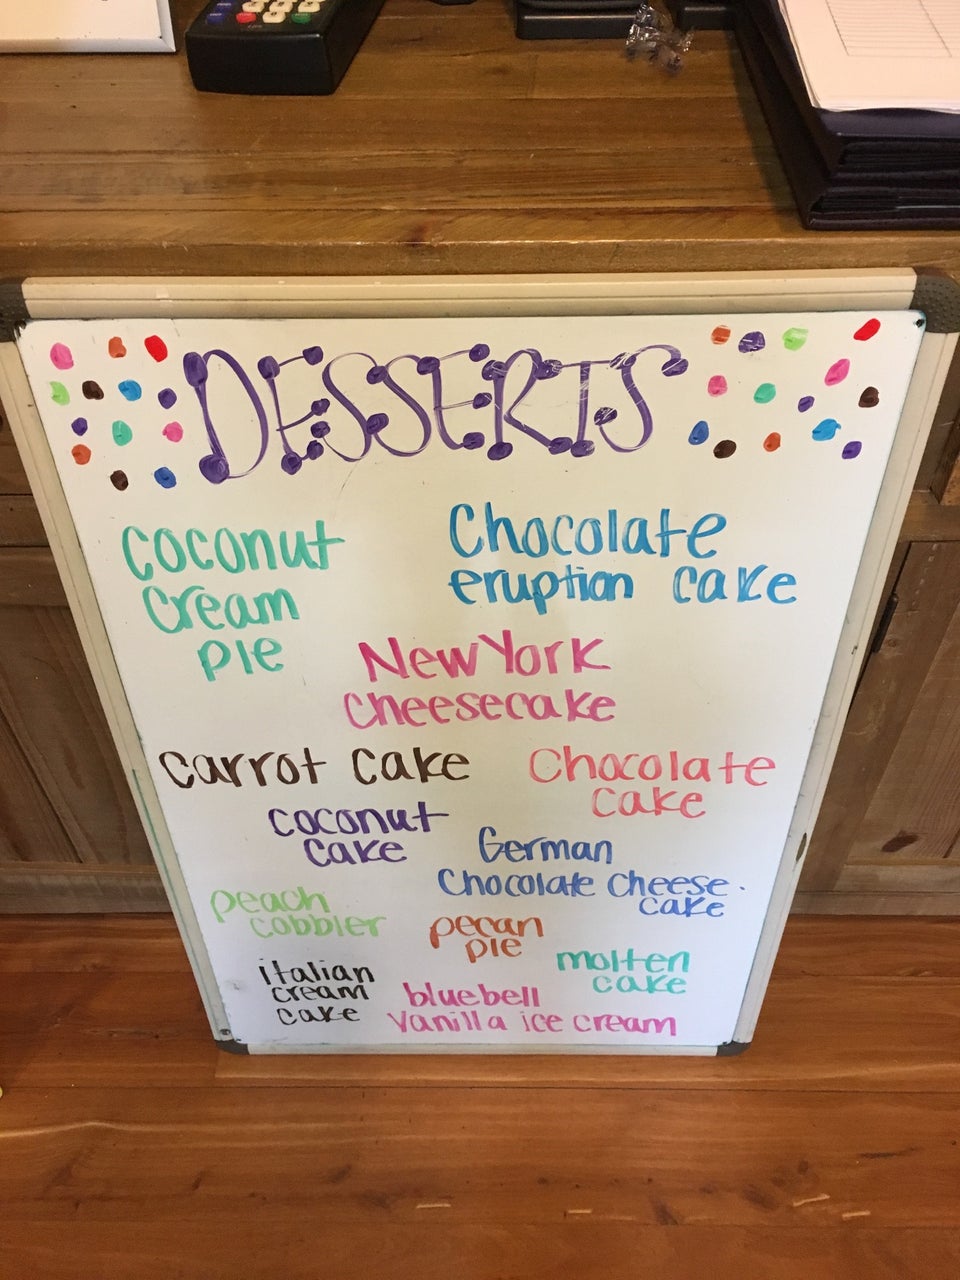 DESSERTS
Coconut
Cream
Pie
Chocolate
eruption cake
New York
Cheesecake
Carrot Cake
Chocolate
Cake
Coconut
Cake
German
Chocolate Cheese
cake
peach
cobbler
pecan
pie
molten
cake
italian
cream
cake
bluebell
Vanilla ice cream